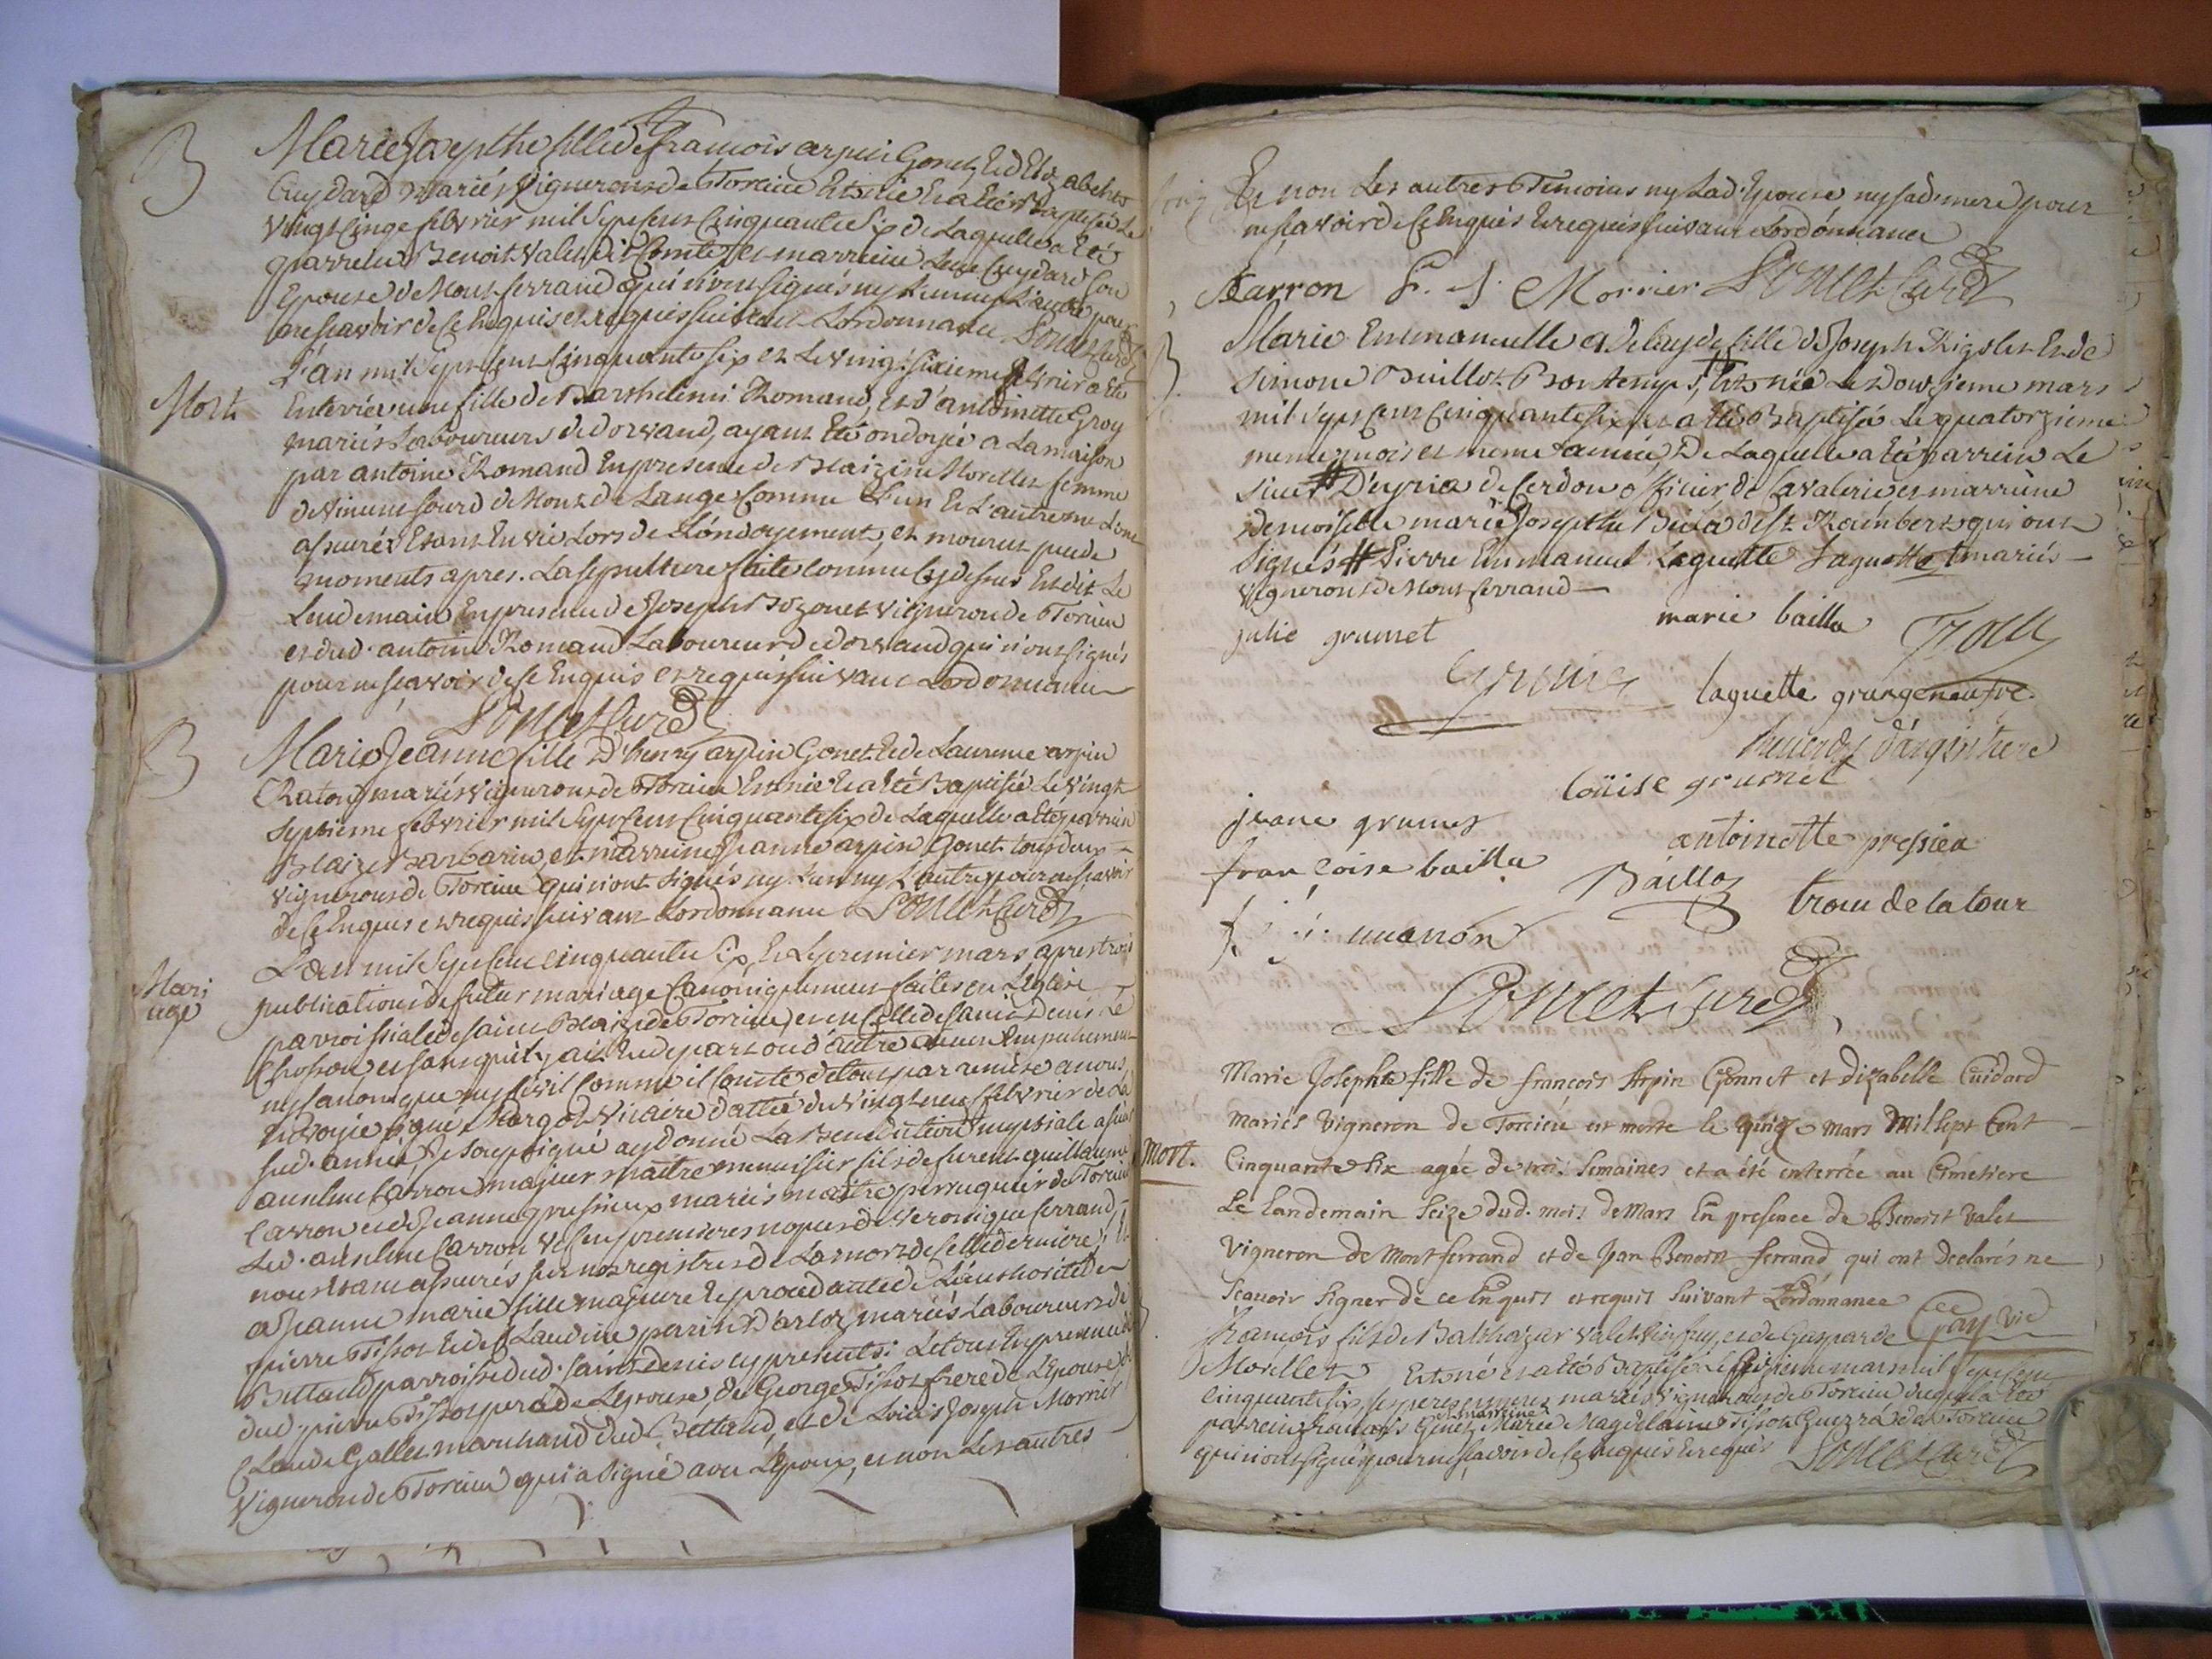 B
Marie Josepthe fille de francois arpin Gonet Et d'Elizabeth
Cuydard mariés Vignerons de Torcieu Est née Et a Eté Baptisée Le
vingt Cinqe febvrier mil Sept Cent Cinquante Six de Laquelle a Eté
parrein Benoit Valet dit Comte et marreine Cuydard
Epouse de Mont ferrand qui n'ont signés ny L'un ny L'autre pour
ne scavoir de Ce Enquis et requis suivant Lordonnance Sonet Curé
Mort
L'an mil Sept Cent Cinquante Six et Le vingt sixieme febvrier a Eté
Enterrée une fille de Barthelemi Romand, et d'antoinette Groy
mariés Laboureurs de dorvand, ayant Eté ondoyée a La maison
par antoine Romand En presence de Blaizine Morellet femme
de Vincent sourd de Mont de Lange Comme L'un Et L'autre me L'ont
assurés Etant En vie Lors de L'ondoyement, et mourut peu de
moments apres. La sepulture faite comme Cy dessus Est dit Le
Lendemain En presence de Joseph Bozonet vigneron de Torcieu
et dud. antoine Romand Laboureur de dorvand qui n'ont signés
pour ne scavoir de Ce Enquis et requis suivant Lordonnance
Sonet Curé
B
Marie Jeanne fille D'henry arpin Gonet Et de Laurence arpin
Chaton mariés vignerons de Torcieu Est née Et a Eté Baptisée Le vingt
Septieme febvrier mil Sept Cent Cinquante six de Laquelle a Eté parrein
Blaize Barbarin, et marreine Jeanne arpin Gonet tous deux
vignerons de Torcieu qui n'ont signés ny L'un ny L'autre pour ne scavoir
de Ce Enquis et requis suivant Lordonnance Sonet Curé
Mari
age
L'an mil Sept Cent cinquante Six, Et Le premier mars apres trois
publications de futur mariage Canoniquement faites en L'Eglise
parroissiale de saint Blaize de Torcieu, et en Celle de saint Denis Le
Chosson et sans qu'il y ait Eu de part ou d'autre aucun Empechement
ny Canonique ny Civil Comme il Conste de tout par remise a nous
Envoyée signé Margot Vicaire dattée du vingt neuf febvrier de La
sud. année, Je soussigné ay donné La Benediction nuptiale a sieur
anselme Carron majeur maitre menuisier fils de furent guillaume
Carron et de Jeanne pressieux mariés maitre perruquier de Torcieu
Led. anselme Carron veuf en premieres nopces de veronique ferrand,
nous Etant assurés sur nos registres de La mort de Cette derniere; Et
a Jeanne marie fille majeure Et procedante de L'authorité de
pierre Tissot Et de Claudine perrin D'arloz mariés Laboureurs de
Bettand parroisse dud. saint denis cy presents: Le tout En presence
dud. pierre Tissot pere de L'epouse, de George Tissot frere de L'epouse de
Claude Gallet marchand dud. Bettand, et de Louis Joseph Morrier
Vigneron de Torcieu qui a signé avec L'epoux, et non Les autres

Et non Les autres Temoins ny Lad. Epouse ny sad. mere pour
ne scavoir de Ce Enquis Et requis suivant Lordonnance
Carron L. J. Morrier Sonet Curé
B
Marie Emmanuelle adelayde fille de Joseph Rigolet Et de
Simone Buillot Bontemps, # Est née Le Douzieme mars
mil Sept Cent Cinquante six et a Eté Baptisée Le quatorzieme
meme mois et meme année, De Laquelle a Eté parrein Le
sieur # D'eyria de Cerdon officier de Cavalerie et marreine
demoiselle marie Josepthe de St Rambert qui ont
signés # Pierre Emmanuel Laguette # mariés
vignerons de Mont ferrand
julie grumet
marie bailla
Trocu
Grumet
laguette grangeneufve
d'argintiere
loüise grumet
jeane grumet
antoinette pressieu
francoise bailla
Baillaz
trocu de la tour
Sonet Curé
Mort.
Marie Josephte fille de françois Arpin Gonnet et dizabelle Cuidard
Mariés Vigneron de Torcieu est morte le quinze Mars Mil sept Cent
Cinquante Six agée de trois Semaines et a été enterrée au Cimetiere
Le Landemain Seize dud. mois de Mars En presence de Benoist Valet
Vigneron de Montferrand et de Jean Benoist ferrand qui ont declarés ne
Scavoir Signer de ce Enquis et requis Suivant L'ordonnance
Gay vic
francois fils de Balthazar Valet, et de Gasparde
Morellet Est né et a Eté Baptisé Le mars mil Sept Cent
cinquante six, ses pere et mere mariés vignerons de Torcieu duquel a Eté
parrein francois Genet, marreine Marie Magdelaine Tissot Guerra de Torcieu
qui n'ont signés pour ne scavoir de Ce Enquis Et requis Sonet Curé